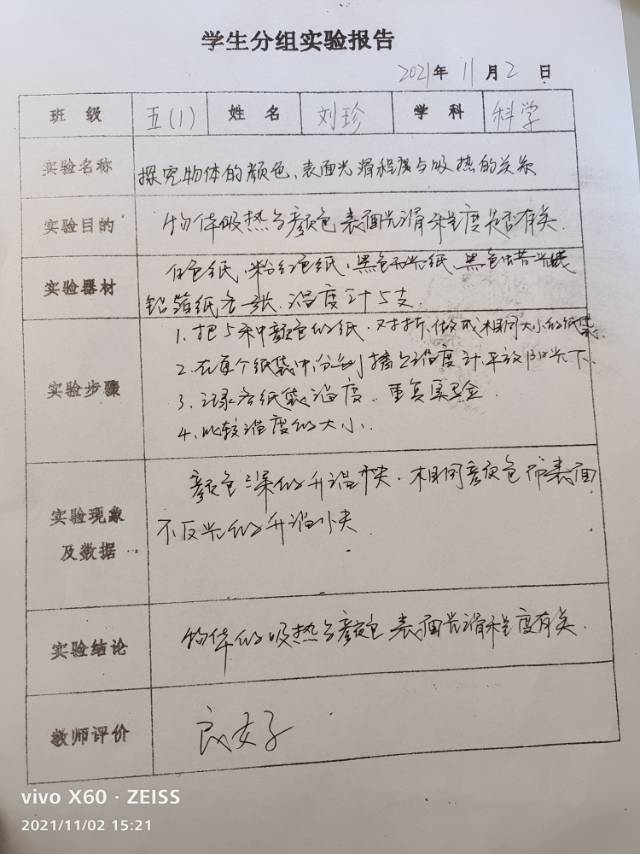 学生分组实验报告
2021年 11月2日
班级 五(1) 姓名 刘珍 学科 科学
实验名称 探究物体的颜色、表面光滑程度与吸热的关系
实验目的 物体吸热与颜色表面光滑程度是否有关.
实验器材 白色纸,粉红色纸,黑色
铝箔纸各一张.温度计5支.
实验步骤 1.把5种颜色的纸.对折,做成相同大小的纸袋.
2.在每个纸袋中,分别插上温度计平放阳光下.
3.记录各纸袋温度.重复实验
4.比较温度的大小.
实验现象及数据 颜色深的升温快.相同颜色而表面
不反光的升温快
实验结论 物体的吸热与颜色表面光滑程度有关.
教师评价 良好
vivo X60 · ZEISS
2021/11/02 15:21